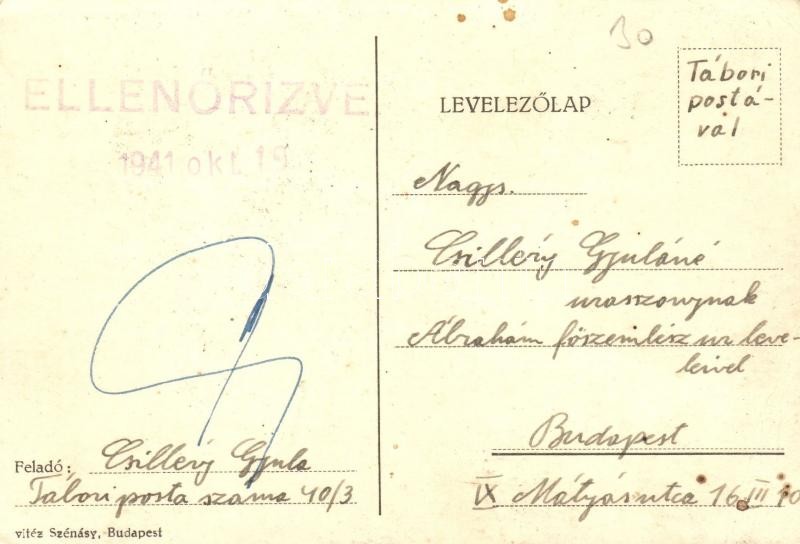 30
ELLENŐRIZVE
1941 okt. 19
LEVELEZŐLAP
Tábori
postá-
val
Nagys.
Csilléry Gyuláné
uraszonynak
Ábrahám főszemlész ur leve-
leivel
Budapest
IX Mátyás utca 16 III 10
Feladó: Csilléry Gyula
Tábori posta száma 40/3
vitéz Szénásy, Budapest